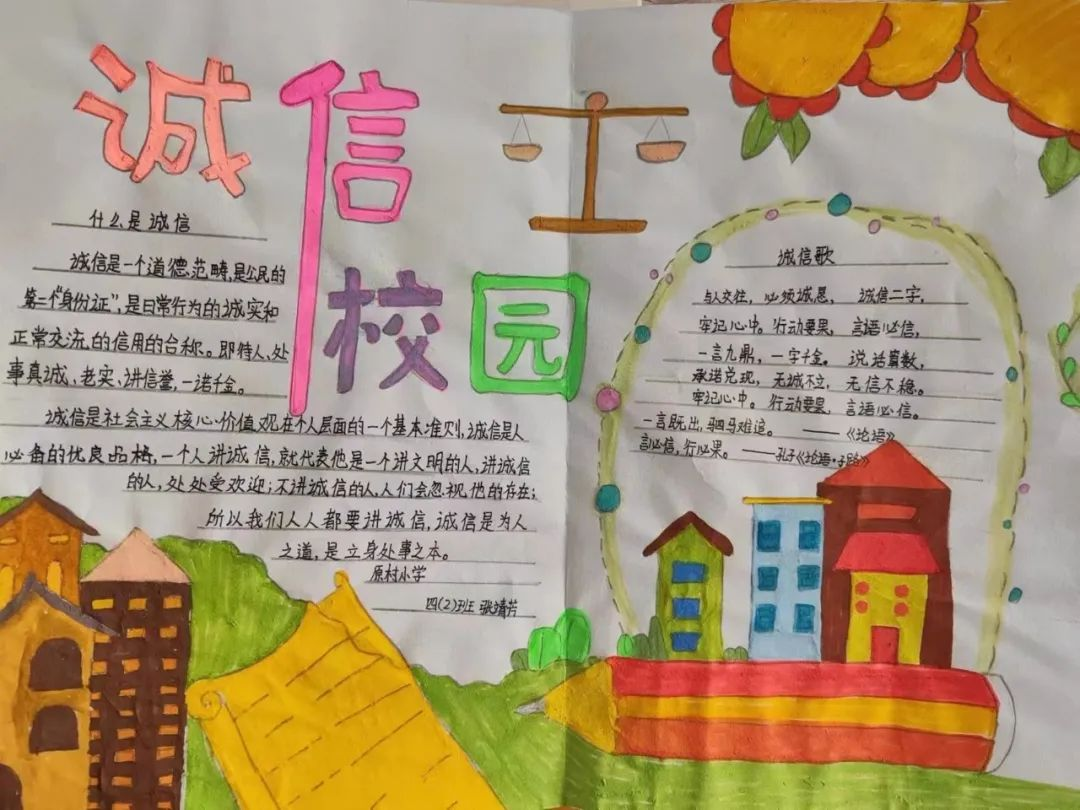 诚信
校园
什么是诚信
诚信是一个道德范畴,是公民的
第二个"身份证",是日常行为的诚实和
正常交流的信用的合称。即待人、处
事真诚、老实、讲信誉,一诺千金。
诚信是社会主义核心价值观在个人层面的一个基本准则,诚信是人
必备的优良品格,一个人讲诚信,就代表他是一个讲文明的人,讲诚信
的人,处处受欢迎;不讲诚信的人,人们会忽视他的存在;
所以我们人人都要讲诚信,诚信是为人
之道,是立身处事之本。
原村小学
四(2)班 张靖芳
诚信歌
与人交往,必须诚恳, 诚信二字,
牢记心中。行动要果, 言语必信,
一言九鼎, 一字千金。 说话算数,
承诺兑现, 无诚不立, 无信不稳。
牢记心中。 行动要果, 言语必信。
一言既出,驷马难追。 ——《论语》
言必信,行必果。 ——孔子《论语·子路》